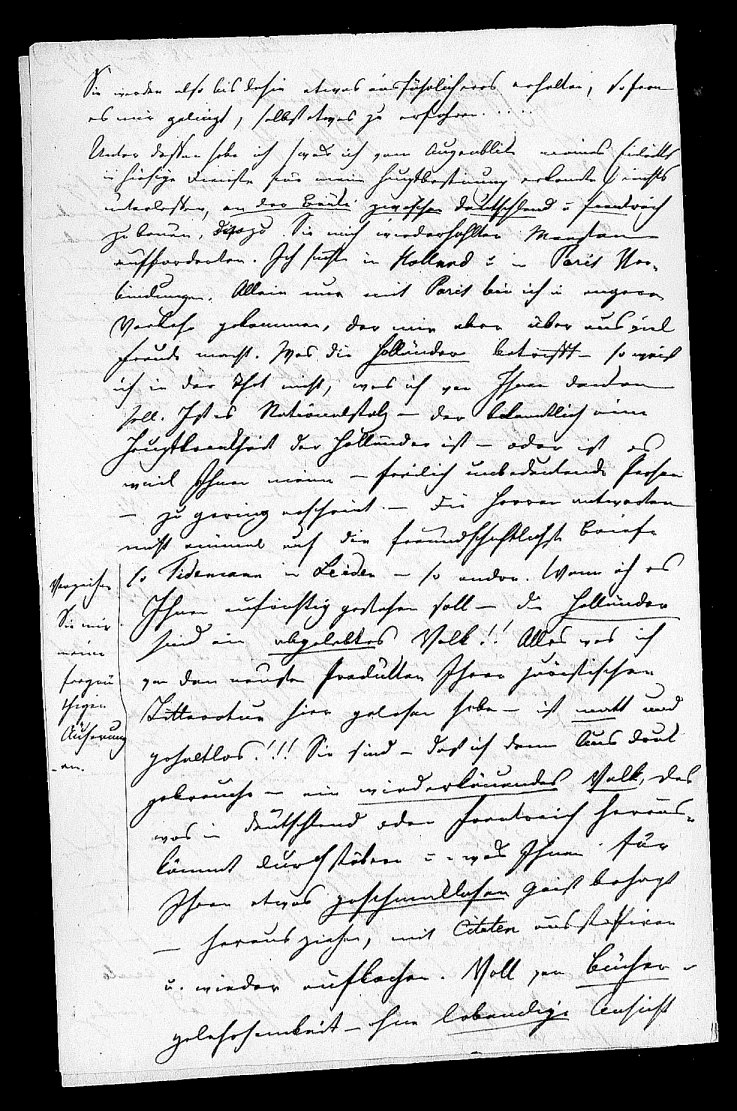 Sie werden also bis dahin etwas ausführlicheres erhalten, sofern
es mir gelingt, selbst etwas zu erfahren.....
Unter dessen habe ich was ich vom Augenblick meines Eintritts
in hiesige Dienste für meine Hauptbestimung erkante nichts
unterlassen, an der Brüke zwischen Deutschland u Frankreich
zu bauen, dazu Sie mich wiederhohlter Massen
aufforderten. Ich suchte in Holland u in Paris Ver-
bindungen. Allein nur mit Paris bin ich in engeren
Verkehr gekommen, der mir aber über aus viel
Freude macht. Was die Holländer betrifft – so weiß
ich in der That nicht, was ich von Ihnen denken
soll. Ist es Nationalstolz – der bekentlich eine
Hauptkrankheit der Holländer ist – oder ist es
weil Ihnen meine – freilich unbedeutende Person
– zu gering erscheint. – Die Herren antworten
nicht einmal auf die freundschaftlichste Briefe
so Tidemann in Leiden – so andre. Wenn ich es
Ihnen aufrichtig gestehen soll – die Holländer
sind ein abgelebtes Volk!! Alles was ich
von den neusten Produkten Ihrer juristischen
Litteratur hier gelesen habe – ist matt und
gehaltlos!!! Sie sind – daß ich dem Ausdruk
gebrauche – ein wiederkäuendes Volk, das
was in Deutschland oder Frankreich heraus-
kömmt durchstöbern u. was Ihnen für
Ihren etwas geschmaklosen Geist behagt
– heraus ziehen, mit Citaten ausstaffiren
u. wieder aufkochen. Voll von Bücher-
gelehrsamkeit – ohne lebendige Ansicht
Verzeihen
Sie mir
meine
freymü
thigen
Äuserung
-en.